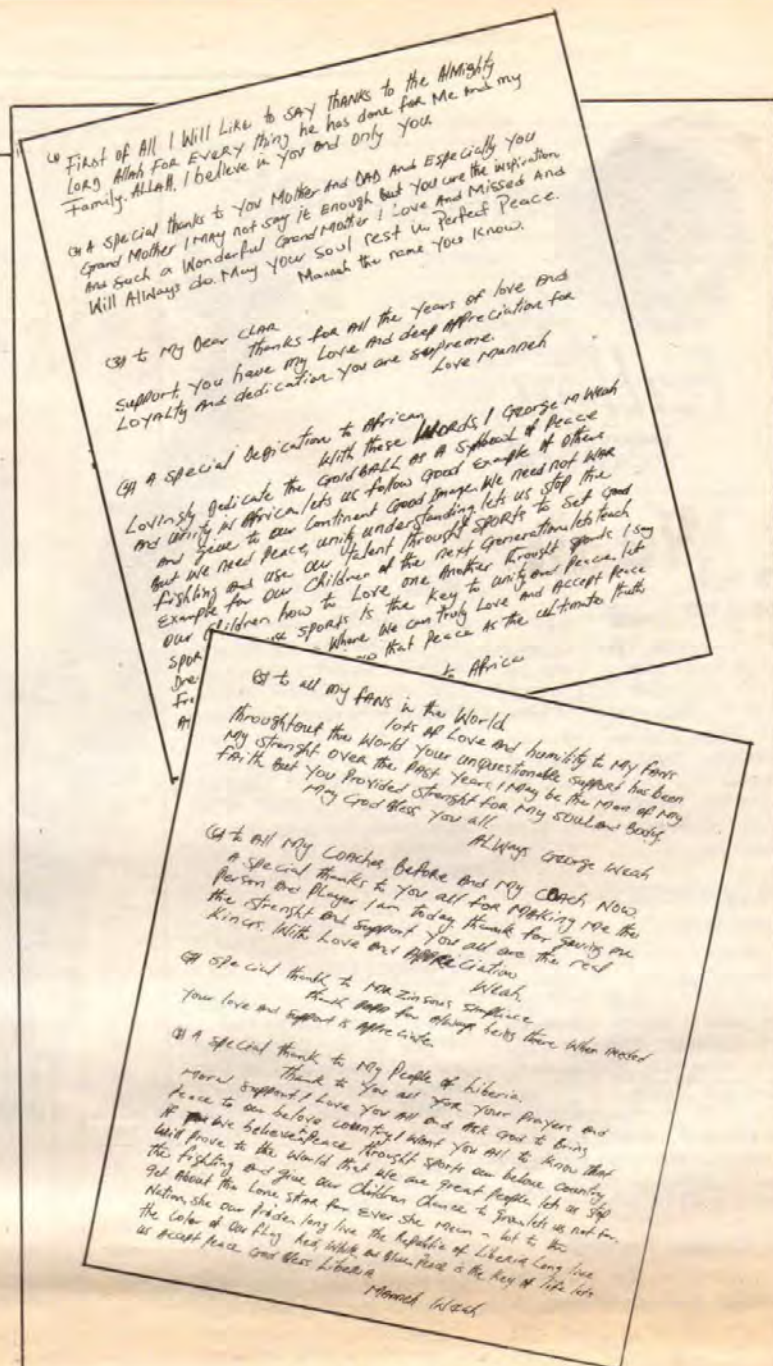 (1) First of All I Will Like to SAY THANKS to the AlMighty
Lord Allah For Every thing he has done for Me And my
Family. ALLAH. I believe in you And only you.
(2) A special thanks to you Mother And DAD And Especially You
Grand Mother I MAY not say it Enough But you are the inspiration
And Such a Wonderful Grand Mother I Love And Missed And
Will AllWays do. May your soul rest in Perfect Peace.
Manneh the name you know.
(3) to My Dear CLAR
thanks for All the years of love And
Support. You have my Love And deep Appreciation for
LOYALTY And dedication you are supreme.
Love Manneh
(4) A special Dedication to African
With these Words, I George M Weah
Lovingly Dedicate the Gold BALL As A Symbowl of Peace
And unity in Africa lets us follow Good Example of Others
And give to our Continent Good Image. We need not WAR
But we need Peace, unity understanding lets us stop the
fighting And use our talent throught SPORTS to Set Good
Example for our Children of the next Generation. lets teach
our Children how to Love one Another throught sports. I say
SPOR use SPORTS Is the Key to Unity and Peace. let
Dre Where We can Truly Love And Accept Peace
Fre that Peace As the ultimate truth
to Africa
(5) to all my FANS in the World
lots of Love And humility to My FANS
throughtout the World your unquestionable support has been
My strenght over the PAST Years. I May be the Man of My
FAith But You Provided strenght for My SOUL And Body.
May God Bless You all.
ALWAYS George Weah
(6) to All My Coaches Before And My Coach Now.
A Special thanks to You all for MAKing Me the
Person And Player I am today thank for giving me
the strenght And Support You all are the real
Kings. With Love And APPReciation
Weah
(7) Special thank to MR Zinsous Simplice
thank PAPA for Always being there When needed
Your love And Support is Appreciate
(8) A special thank to My People of Liberia.
Thank to You all for Your Prayers And
Moral Support. I Love You All and Ask God to Bring
Peace to our belove country. I Want You All to Know that
If We believe Peace throught sports our belove country
Will Prove to the World that We are great People. let us stop
the fighting and give our Children Chance to Grow. lets us not for-
get About the Lone STAR for Ever She Mean a lot to the
Nation, she our Pride. long live the Republic of Liberia Long live
the Color of our Flag Red, White and Blue. Peace is the Key of life lets
us Accept Peace God Bless Liberia
Manneh Weah